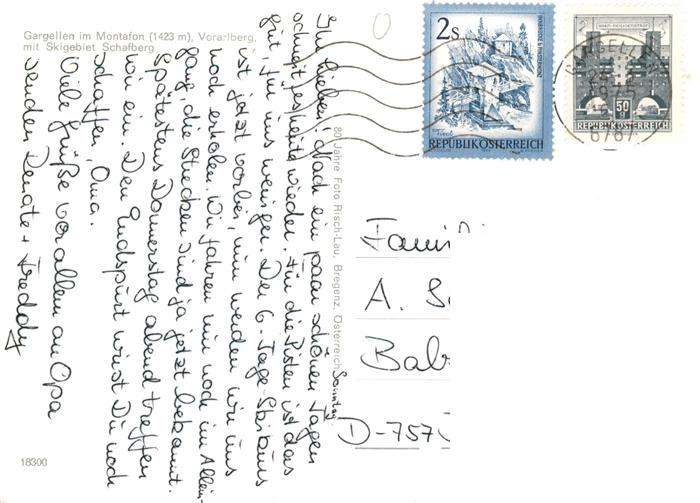 Gargellen im Montafon (1423 m), Vorarlberg,
mit Skigebiet Schafberg
Ihr Lieben! Nach ein paar schönen Tagen
schneit es heute wieder. Für die Pisten ist das
gut, für uns weniger. Der 6-Tage Skikurs
ist jetzt vorbei, nun werden wir uns
noch erholen. Wir fahren nun noch im Allein-
gang, die Strecken sind ja jetzt bekannt.
Spätestens Donnerstag abend treffen
wir ein. Den Endspurt wirst Du noch
schaffen, Oma.
Viele Grüße vor allem an Opa
senden Renate + Freddy
Sonntag
80 Jahre Foto Risch-Lau, Bregenz, Österreich
18300
2 S
REPUBLIK ÖSTERREICH
50 g
REPUBLIK ÖSTERREICH
1975
6787
Fami
A. S
Bab
D-757